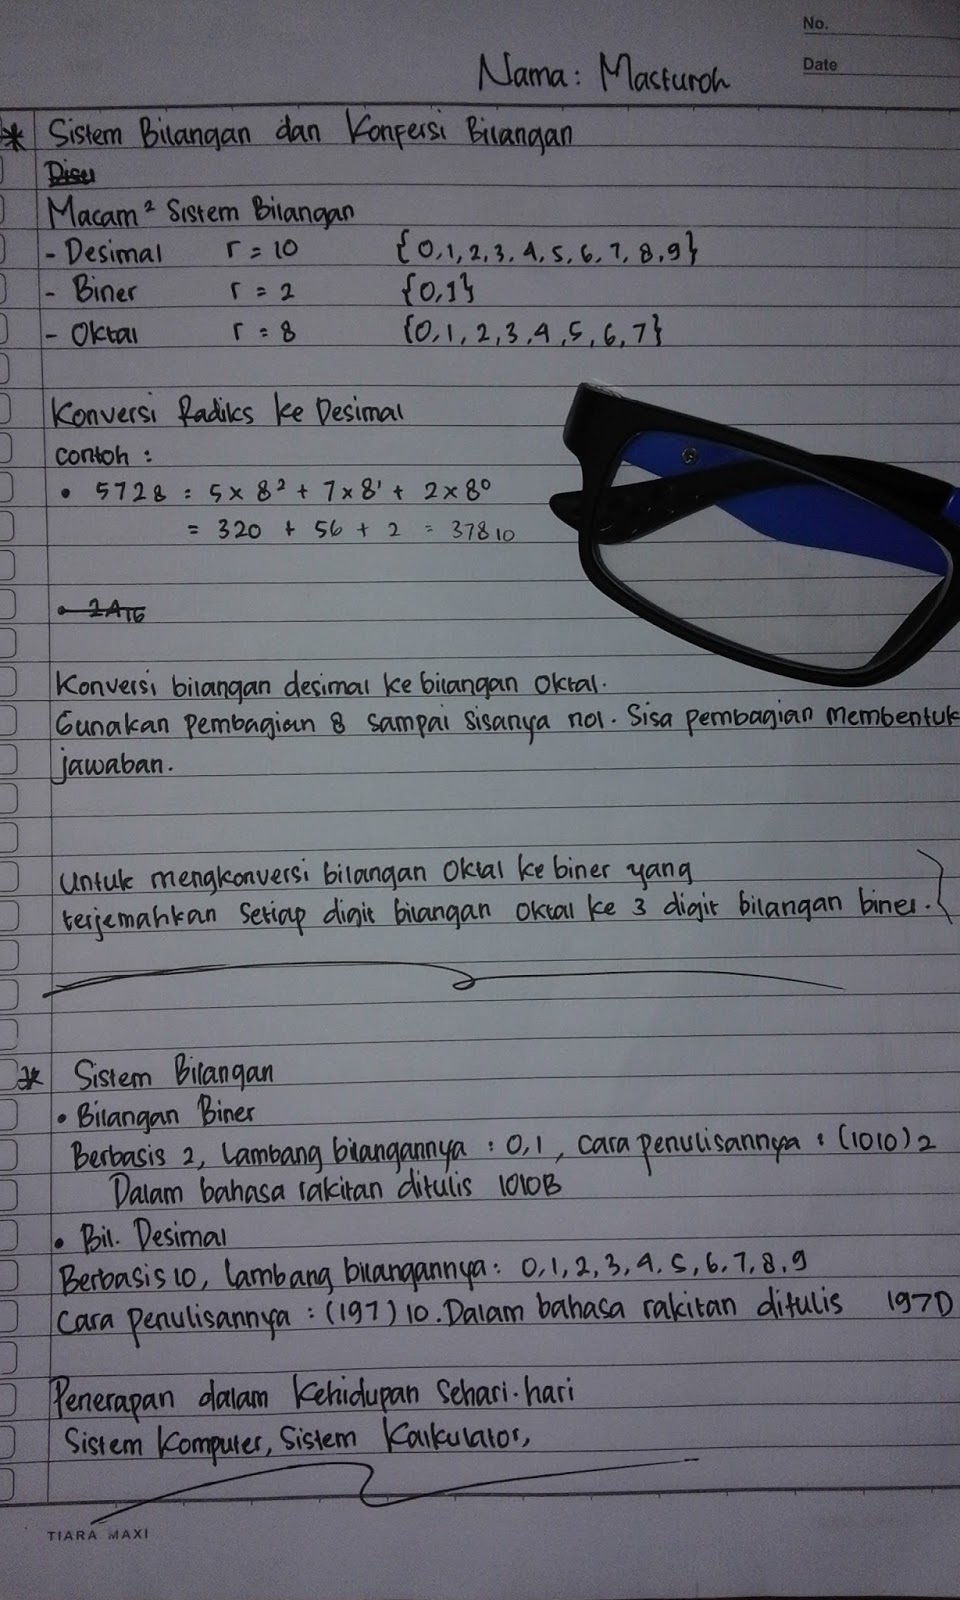 No.
Date
Nama: Masturoh
* Sistem Bilangan dan Konfersi Bilangan
Disu
Macam² Sistem Bilangan
- Desimal r = 10 {0,1,2,3,4,5,6,7,8,9}
- Biner r = 2 {0,1}
- Oktal r = 8 {0,1,2,3,4,5,6,7}
Konversi Radiks ke Desimal
contoh :
• 572₈ = 5 x 8² + 7 x 8¹ + 2 x 8⁰
= 320 + 56 + 2 = 378₁₀
• 2A₁₆
Konversi bilangan desimal ke bilangan Oktal.
Gunakan pembagian 8 sampai sisanya nol. Sisa pembagian membentuk
jawaban.
Untuk mengkonversi bilangan Oktal ke biner yang
terjemahkan Setiap digit bilangan oktal ke 3 digit bilangan biner. }
* Sistem Bilangan
• Bilangan Biner
Berbasis 2, Lambang bilangannya : 0,1, Cara penulisannya : (1010) 2
Dalam bahasa rakitan ditulis 1010B
• Bil. Desimal
Berbasis 10, Lambang bilangannya: 0,1,2,3,4,5,6,7,8,9
Cara penulisannya : (197) 10. Dalam bahasa rakitan ditulis 197D
Penerapan dalam Kehidupan Sehari-hari
Sistem Komputer, Sistem Kalkulator,
TIARA MAXI